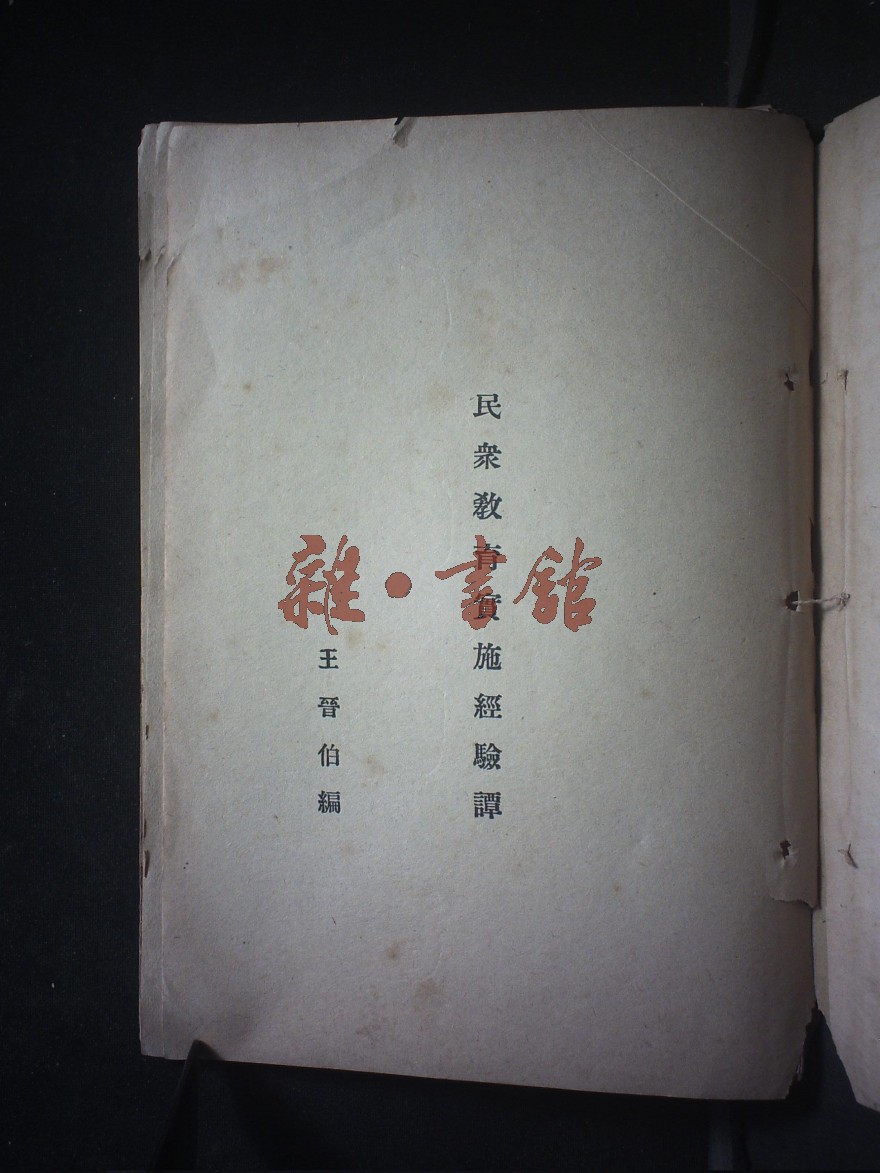 民衆教育實施經驗譚
王晉伯編
雜·書館